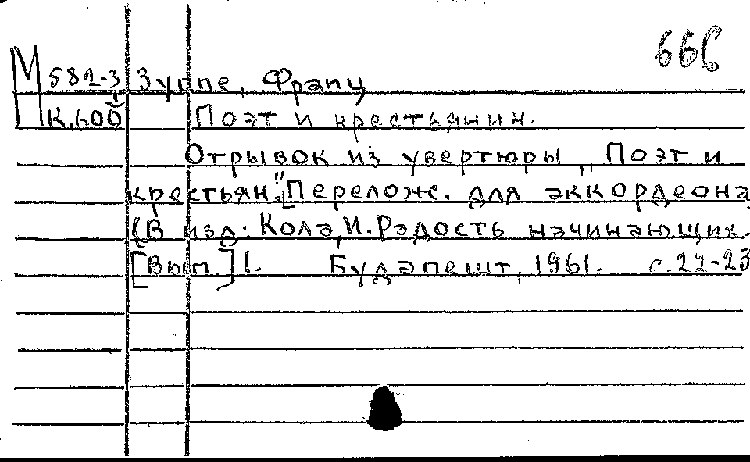 66б
М 582-3 Зуппе, Франц
К.600 Поэт и крестьянин.
Отрывок из увертюры „Поэт и
крестьян." [Перелож. для аккордеона
(В изд. Кола, И. Радость начинающих.
[Вып.] 1. Будапешт, 1961. с.22-23